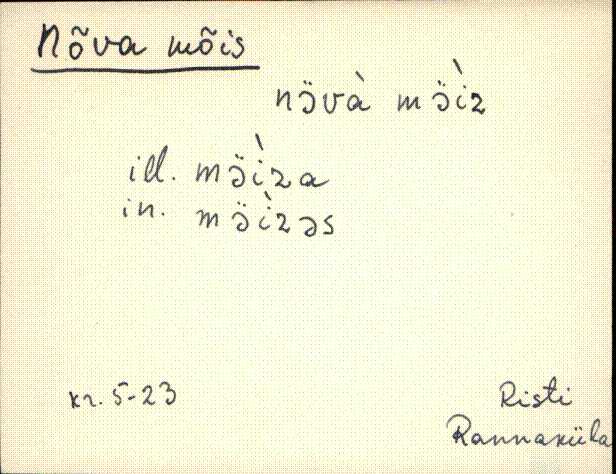 Nõva mõis
nɔ̈và mɔ̈ìz
ill. mɔ̈ìza
in. mɔ̈ìzəs
kr. 5-23
Risti
Rannaküla